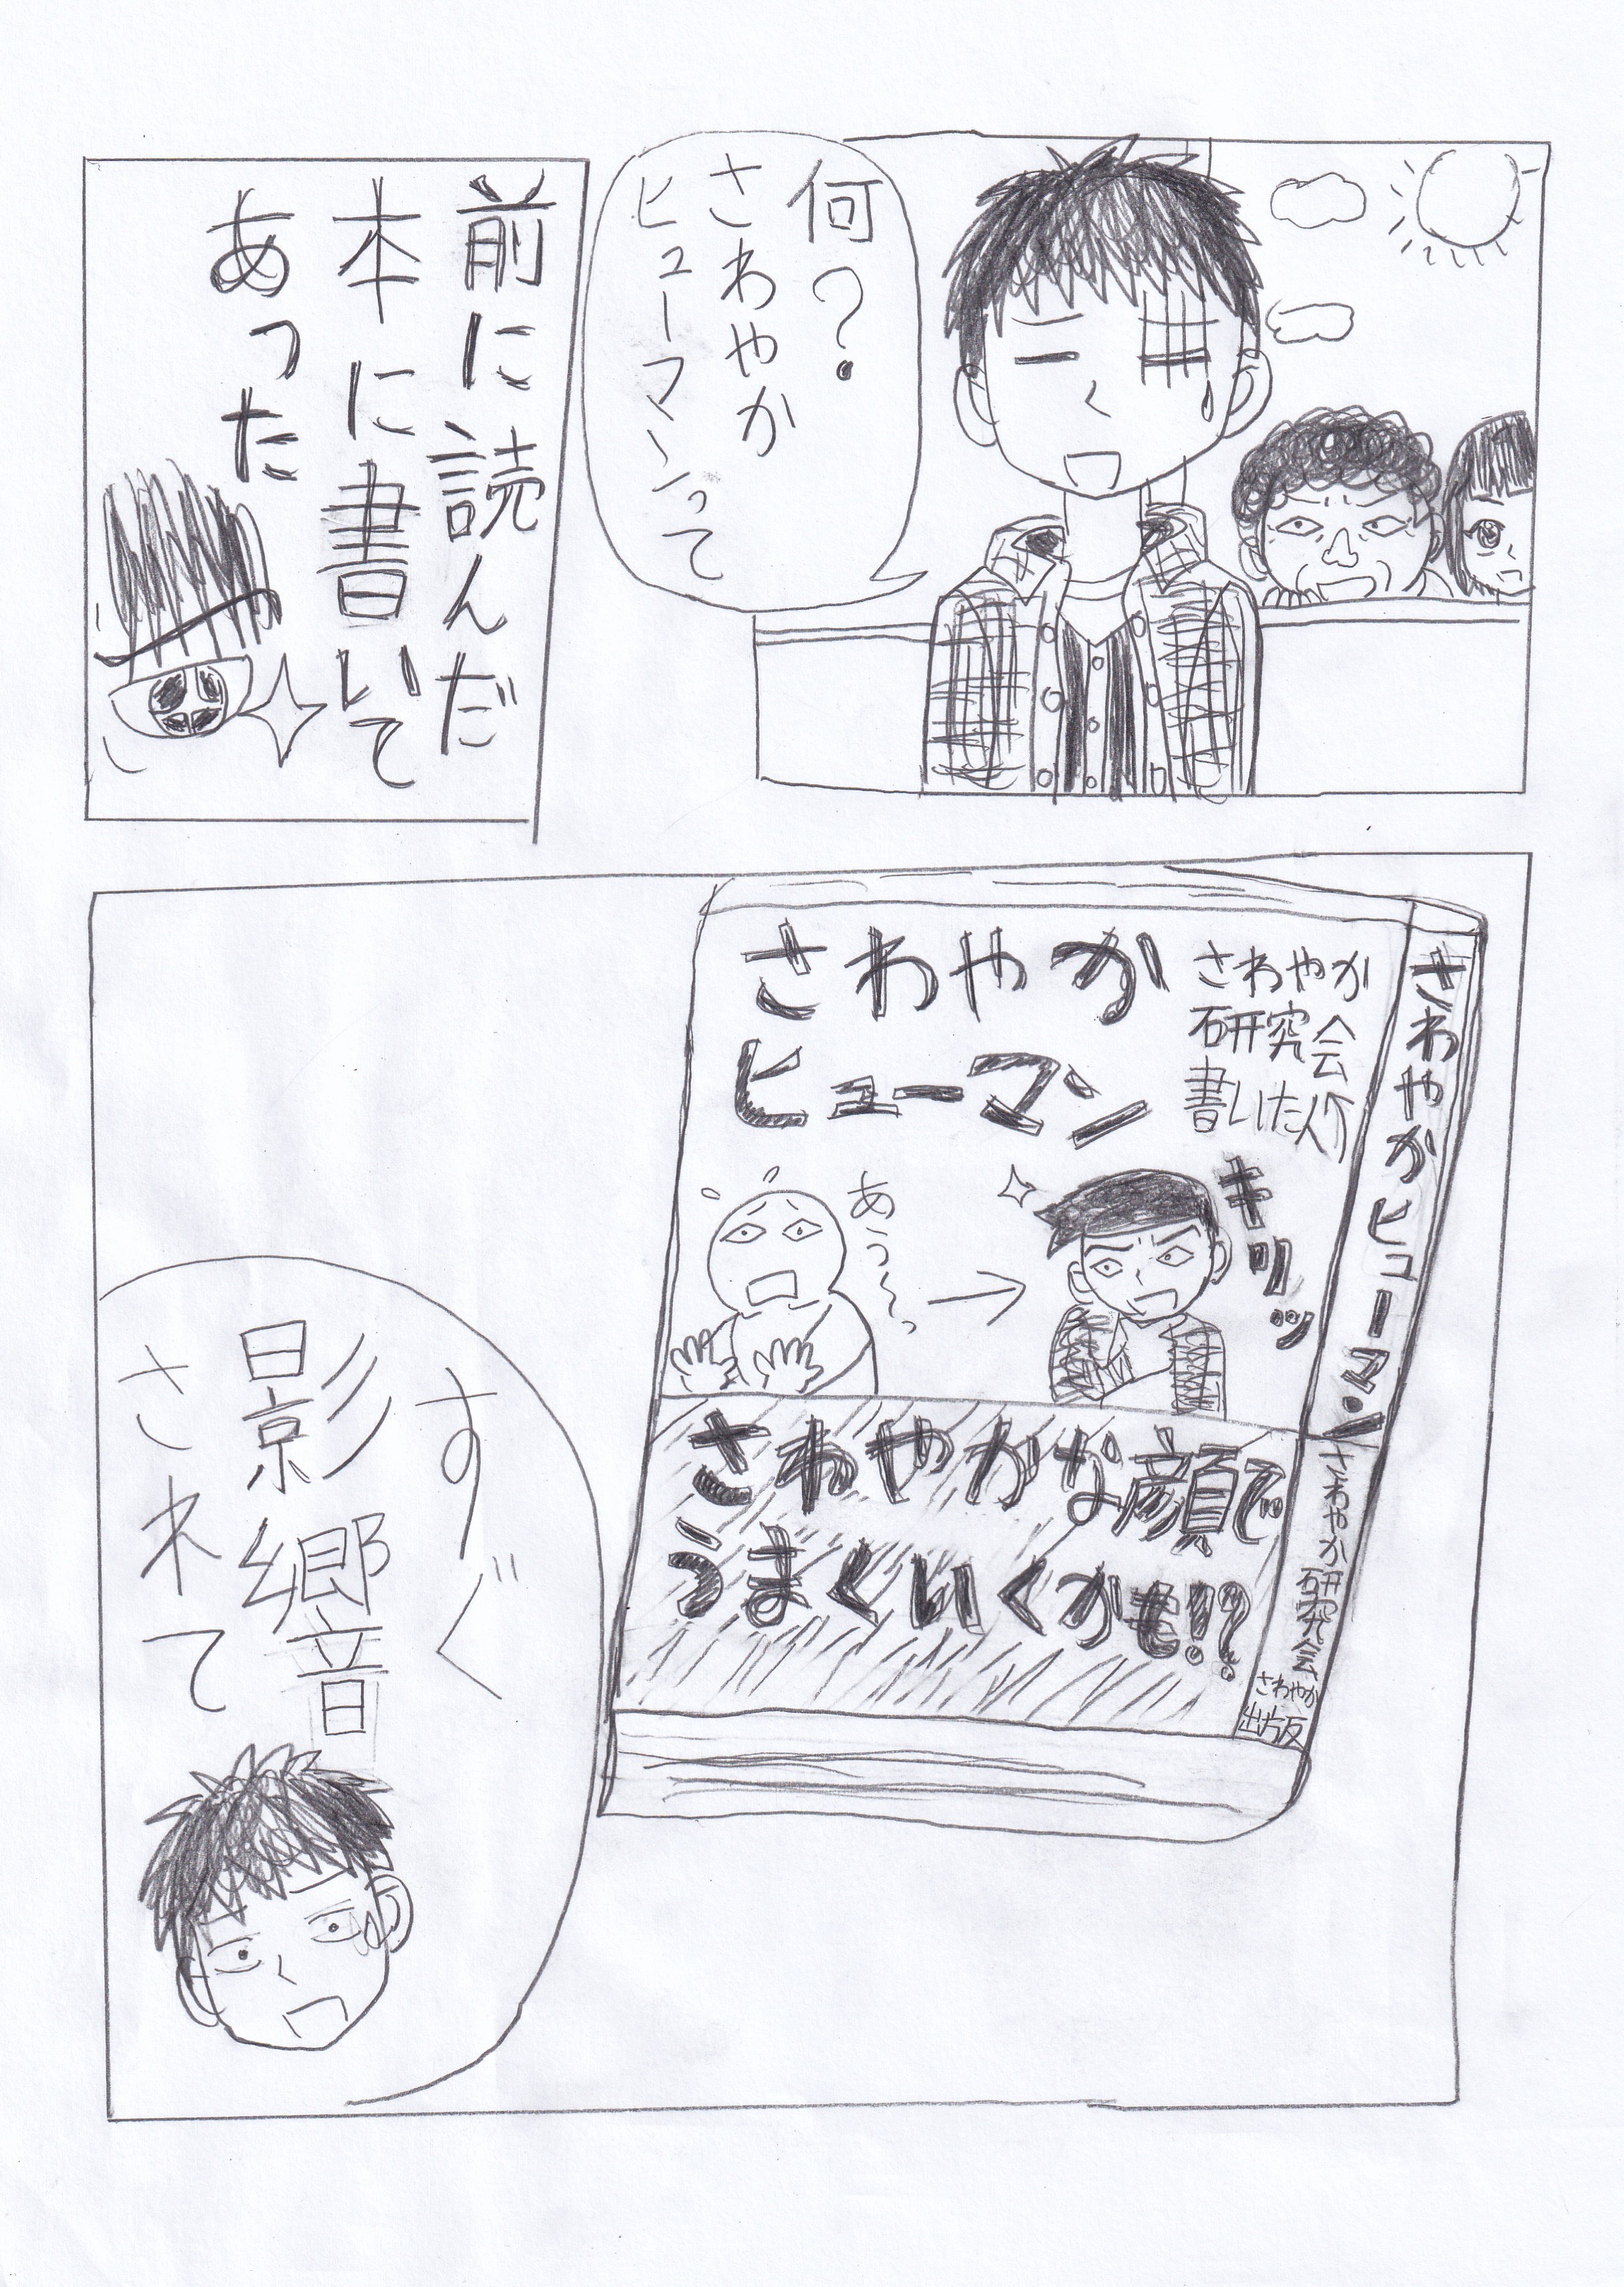 何?
さわやか
ヒューマンって
前に読んだ
本に書いて
あった
さわやか
ヒューマン
さわやか
研究会
書いた人
キリッ
あう〜
さわやかな顔で
うまくいくかも!?
さわやかヒューマン
さわやか研究会
さわやか
出版
すぐ
影響
されて